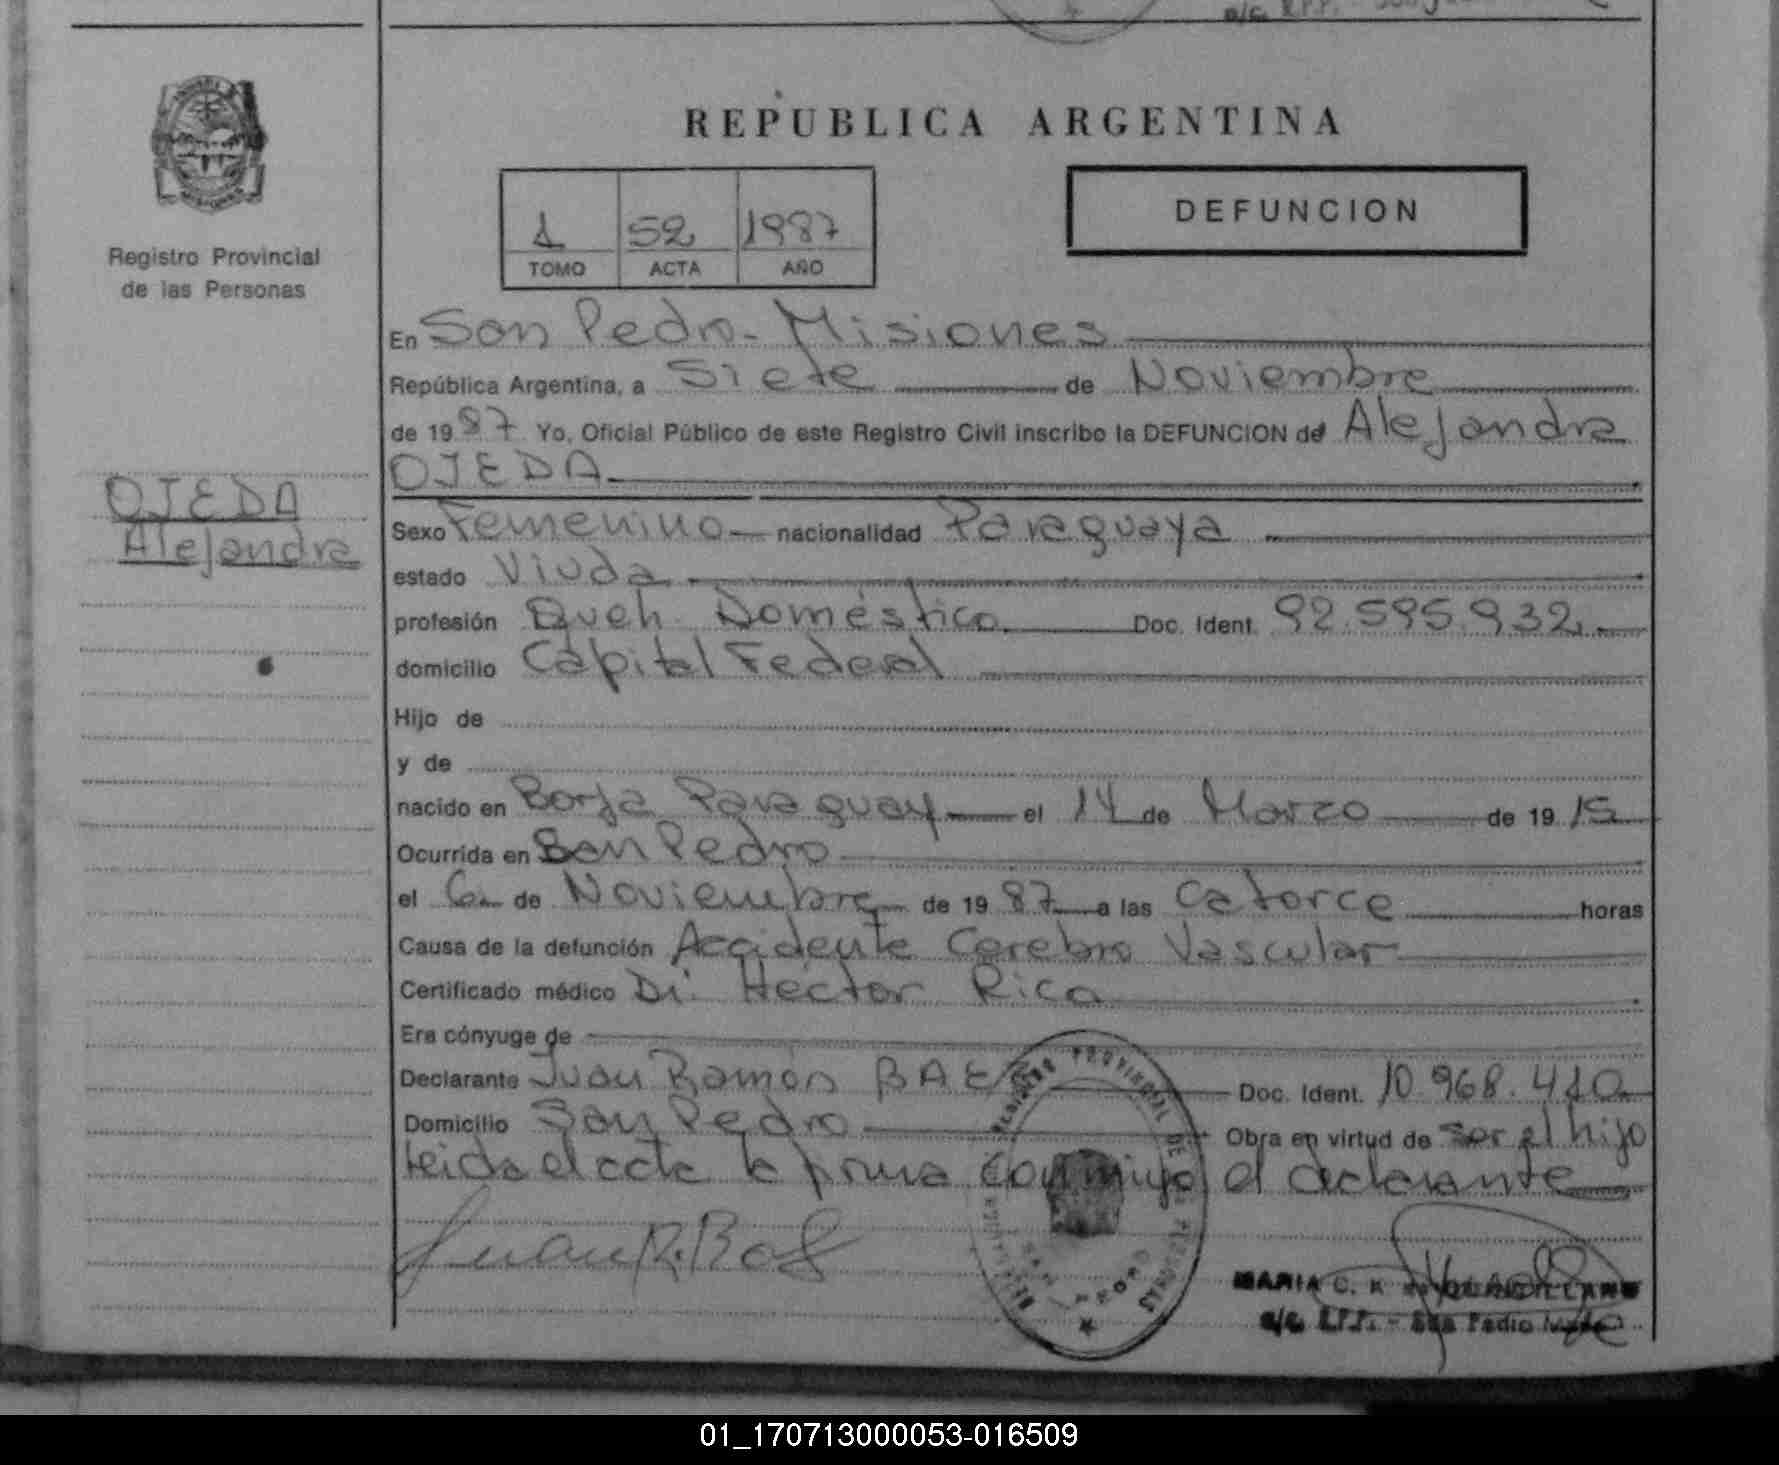 REPUBLICA ARGENTINA
Registro Provincial
de las Personas
1 52 1987
TOMO ACTA AÑO
DEFUNCION
OJEDA
Alejandra
En San Pedro - Misiones
República Argentina, a Siete de Noviembre
de 1987 Yo, Oficial Público de este Registro Civil inscribo la DEFUNCION de Alejandra
OJEDA
Sexo Femenino nacionalidad Paraguaya
estado Viuda
profesión Queh. Doméstico Doc. Ident. 92.595.932
domicilio Capital Federal
Hijo de
y de
nacido en Borja Paraguay el 14 de Marzo de 1915
Ocurrida en San Pedro
el 6 de Noviembre de 1987 a las Catorce horas
Causa de la defunción Accidente Cerebro Vascular
Certificado médico Dr. Héctor Rica
Era cónyuge de
Declarante Juan Ramón Doc. Ident. 10.968.410
Domicilio San Pedro Obra en virtud de ser el hijo
leida el acta la firma conmigo el declarante
Juan R.
REGISTRO PROVINCIAL DE LAS PERSONAS
SAN PEDRO
MARIA C. K.
a/c. R.P.P. - San Pedro
01_170713000053-016509